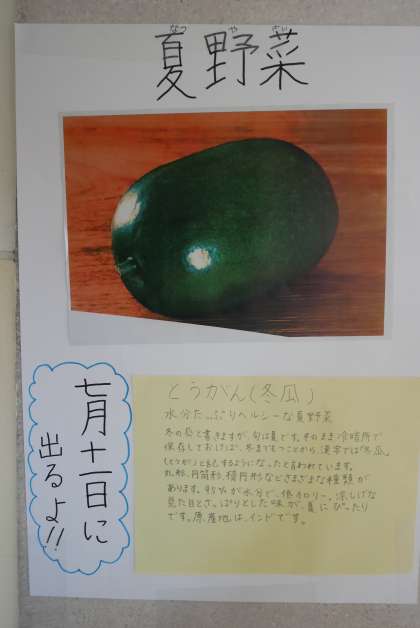 なつ や さい
夏野菜
とうがん(冬瓜)
水分たっぷりヘルシーな夏野菜
冬の瓜と書きますが、旬は夏です。そのまま冷暗所で
保存しておけば、冬までもつことから、漢字では「冬瓜」
(とうが)と記するようになったと言われています。
丸形、円筒形、楕円形などさまざまな種類が
あります。95%が水分で、低カロリー。涼しげな
見た目とさっぱりとした味が、夏にぴったり
です。原産地は、インドです。
七月十一日に
出るよ!!